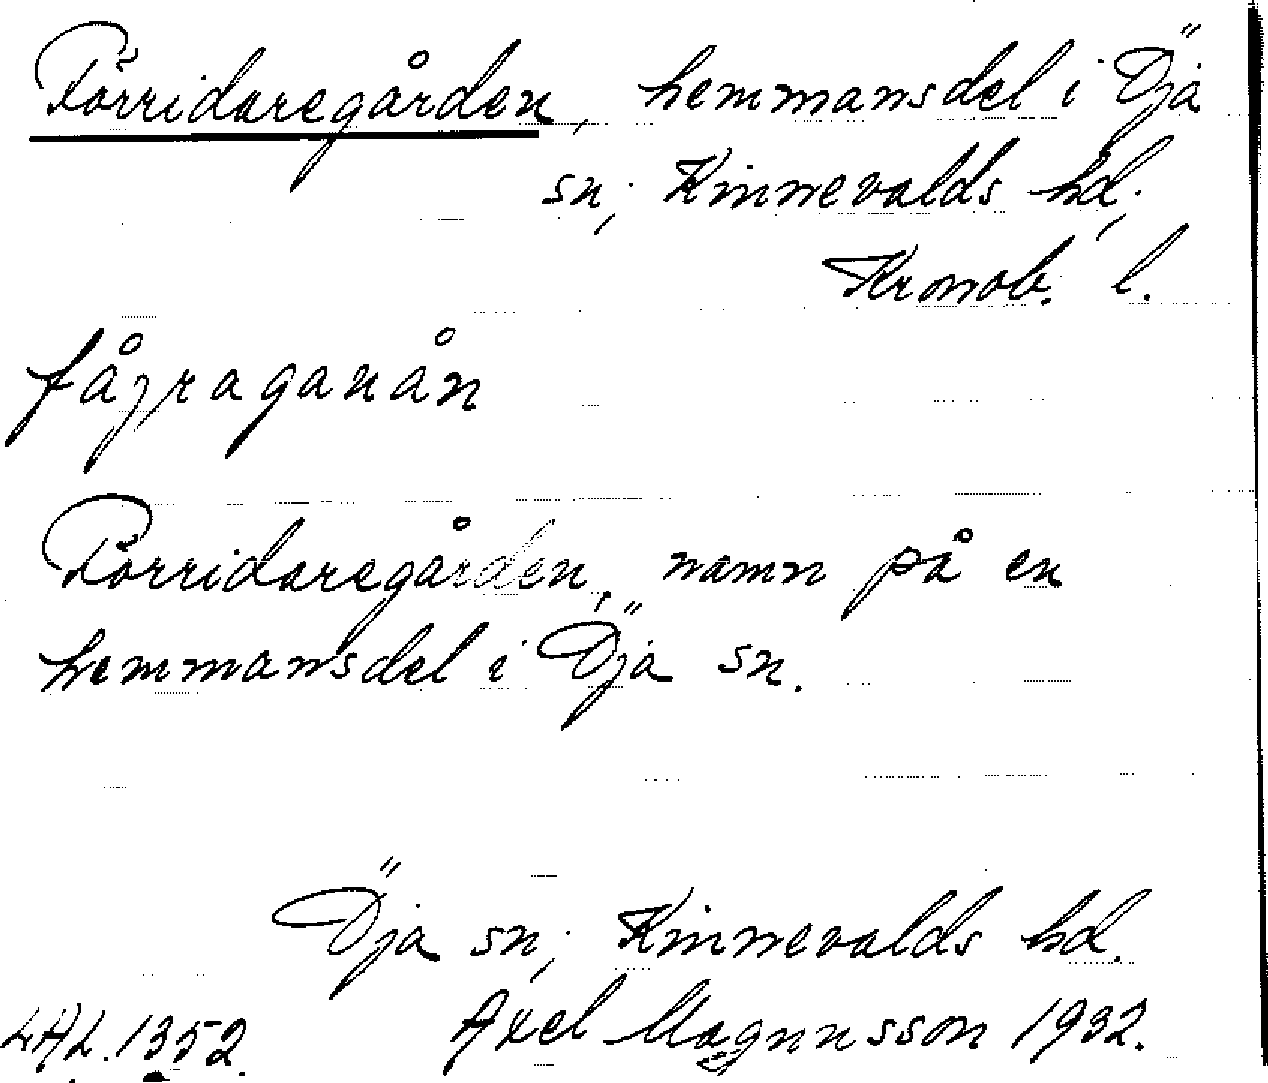 Förridaregården, hemmansdel i Öja
sn, Kinnevalds hd,
Kronob. l.
fåʒraganån
Förridaregården, namn på en
hemmansdel i Öja sn.
Öja sn, Kinnevalds hd.
LAL. 1352. Axel Magnusson 1932.